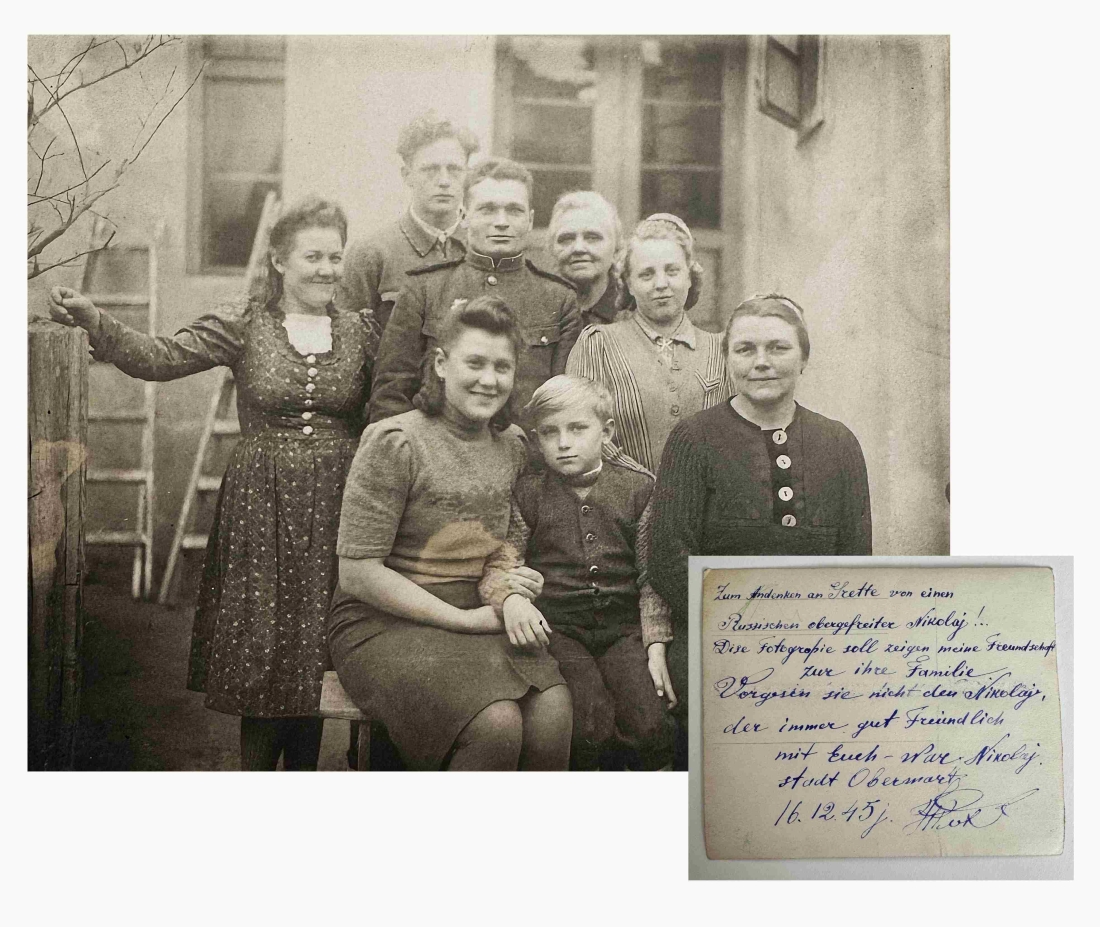 Zum Andenken an Grette von einen
Russischen obergefreiter Nikolaj!..
Dise Fotogropie soll zeigen meine Freundschaft
zur ihre Familie
Vorgesen sie nicht den Nikolaj,
der immer gut Freundlich
mit Euch - war. Nikolaj.
stadt Obermart
16.12.45j.